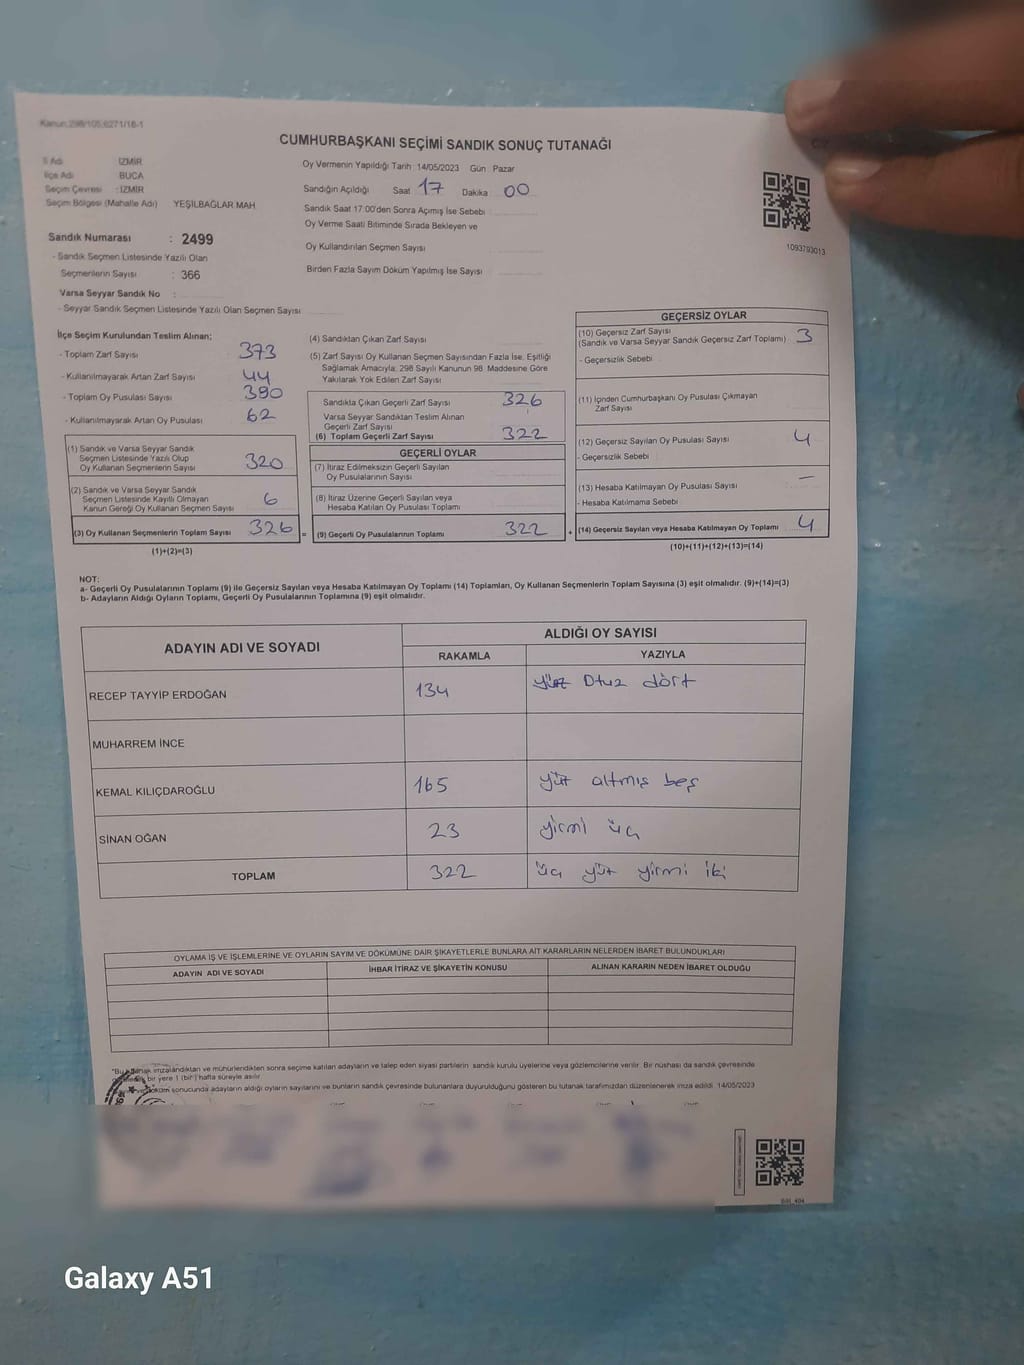 Kanun:298/105,6271/18-1
CUMHURBAŞKANI SEÇİMİ SANDIK SONUÇ TUTANAĞI
İl Adı İZMİR
İlçe Adı BUCA
Seçim Çevresi : İZMİR
Seçim Bölgesi (Mahalle Adı) YEŞİLBAĞLAR MAH
Sandık Numarası : 2499
- Sandık Seçmen Listesinde Yazılı Olan
Seçmenlerin Sayısı : 366
Varsa Seyyar Sandık No :
- Seyyar Sandık Seçmen Listesinde Yazılı Olan Seçmen Sayısı
Oy Vermenin Yapıldığı Tarih : 14/05/2023 Gün : Pazar
Sandığın Açıldığı Saat 17 Dakika 00
Sandık Saat 17:00'den Sonra Açımış İse Sebebi
Oy Verme Saati Bitiminde Sırada Bekleyen ve
Oy Kullandırılan Seçmen Sayısı
Birden Fazla Sayım Döküm Yapılmış İse Sayısı
1093793013
İlçe Seçim Kurulundan Teslim Alınan;
- Toplam Zarf Sayısı 373
- Kullanılmayarak Artan Zarf Sayısı 44
- Toplam Oy Pusulası Sayısı 380
- Kullanılmayarak Artan Oy Pusulası 62
(1) Sandık ve Varsa Seyyar Sandık
Seçmen Listesinde Yazılı Olup
Oy Kullanan Seçmenlerin Sayısı 320
(2) Sandık ve Varsa Seyyar Sandık
Seçmen Listesinde Kayıtlı Olmayan
Kanun Gereği Oy Kullanan Seçmen Sayısı 6
(3) Oy Kullanan Seçmenlerin Toplam Sayısı 326 =
(1)+(2)=(3)
(4) Sandıktan Çıkan Zarf Sayısı
(5) Zarf Sayısı Oy Kullanan Seçmen Sayısından Fazla İse, Eşitliği
Sağlamak Amacıyla; 298 Sayılı Kanunun 98. Maddesine Göre
Yakılarak Yok Edilen Zarf Sayısı
Sandıkta Çıkan Geçerli Zarf Sayısı 326
Varsa Seyyar Sandıktan Teslim Alınan
Geçerli Zarf Sayısı
(6) Toplam Geçerli Zarf Sayısı 322
GEÇERLİ OYLAR
(7) İtiraz Edilmeksizin Geçerli Sayılan
Oy Pusulalarının Sayısı
(8) İtiraz Üzerine Geçerli Sayılan veya
Hesaba Katılan Oy Pusulası Toplamı
(9) Geçerli Oy Pusulalarının Toplamı 322 +
GEÇERSİZ OYLAR
(10) Geçersiz Zarf Sayısı
(Sandık ve Varsa Seyyar Sandık Geçersiz Zarf Toplamı) 3
- Geçersizlik Sebebi
(11) İçinden Cumhurbaşkanı Oy Pusulası Çıkmayan
Zarf Sayısı
(12) Geçersiz Sayılan Oy Pusulası Sayısı 4
- Geçersizlik Sebebi
(13) Hesaba Katılmayan Oy Pusulası Sayısı —
- Hesaba Katılmama Sebebi
(14) Geçersiz Sayılan veya Hesaba Katılmayan Oy Toplamı 4
(10)+(11)+(12)+(13)=(14)
NOT:
a- Geçerli Oy Pusulalarının Toplamı (9) ile Geçersiz Sayılan veya Hesaba Katılmayan Oy Toplamı (14) Toplamları, Oy Kullanan Seçmenlerin Toplam Sayısına (3) eşit olmalıdır. (9)+(14)=(3)
b- Adayların Aldığı Oyların Toplamı, Geçerli Oy Pusulalarının Toplamına (9) eşit olmalıdır.
ADAYIN ADI VE SOYADI ALDIĞI OY SAYISI
RAKAMLA YAZIYLA
RECEP TAYYİP ERDOĞAN 134 yüz Otuz dört
MUHARREM İNCE
KEMAL KILIÇDAROĞLU 165 yüz altmış beş
SİNAN OĞAN 23 yirmi üç
TOPLAM 322 üç yüz yirmi iki
OYLAMA İŞ VE İŞLEMLERİNE VE OYLARIN SAYIM VE DÖKÜMÜNE DAİR ŞİKAYETLERLE BUNLARA AİT KARARLARIN NELERDEN İBARET BULUNDUKLARI
ADAYIN ADI VE SOYADI İHBAR İTİRAZ VE ŞİKAYETİN KONUSU ALINAN KARARIN NEDEN İBARET OLDUĞU
imzalandıktan ve mühürlendikten sonra seçime katılan adayların ve talep eden siyasi partilerin sandık kurulu üyelerine veya gözlemcilerine verilir. Bir nüshası da sandık çevresinde
bir yere 1 (bir) hafta süreyle asılır
sonucunda adayların aldığı oyların sayılarını ve bunların sandık çevresinde bulunanlara duyurulduğunu gösteren bu tutanak tarafımızdan düzenlenerek imza edildi. 14/05/2023
Galaxy A51